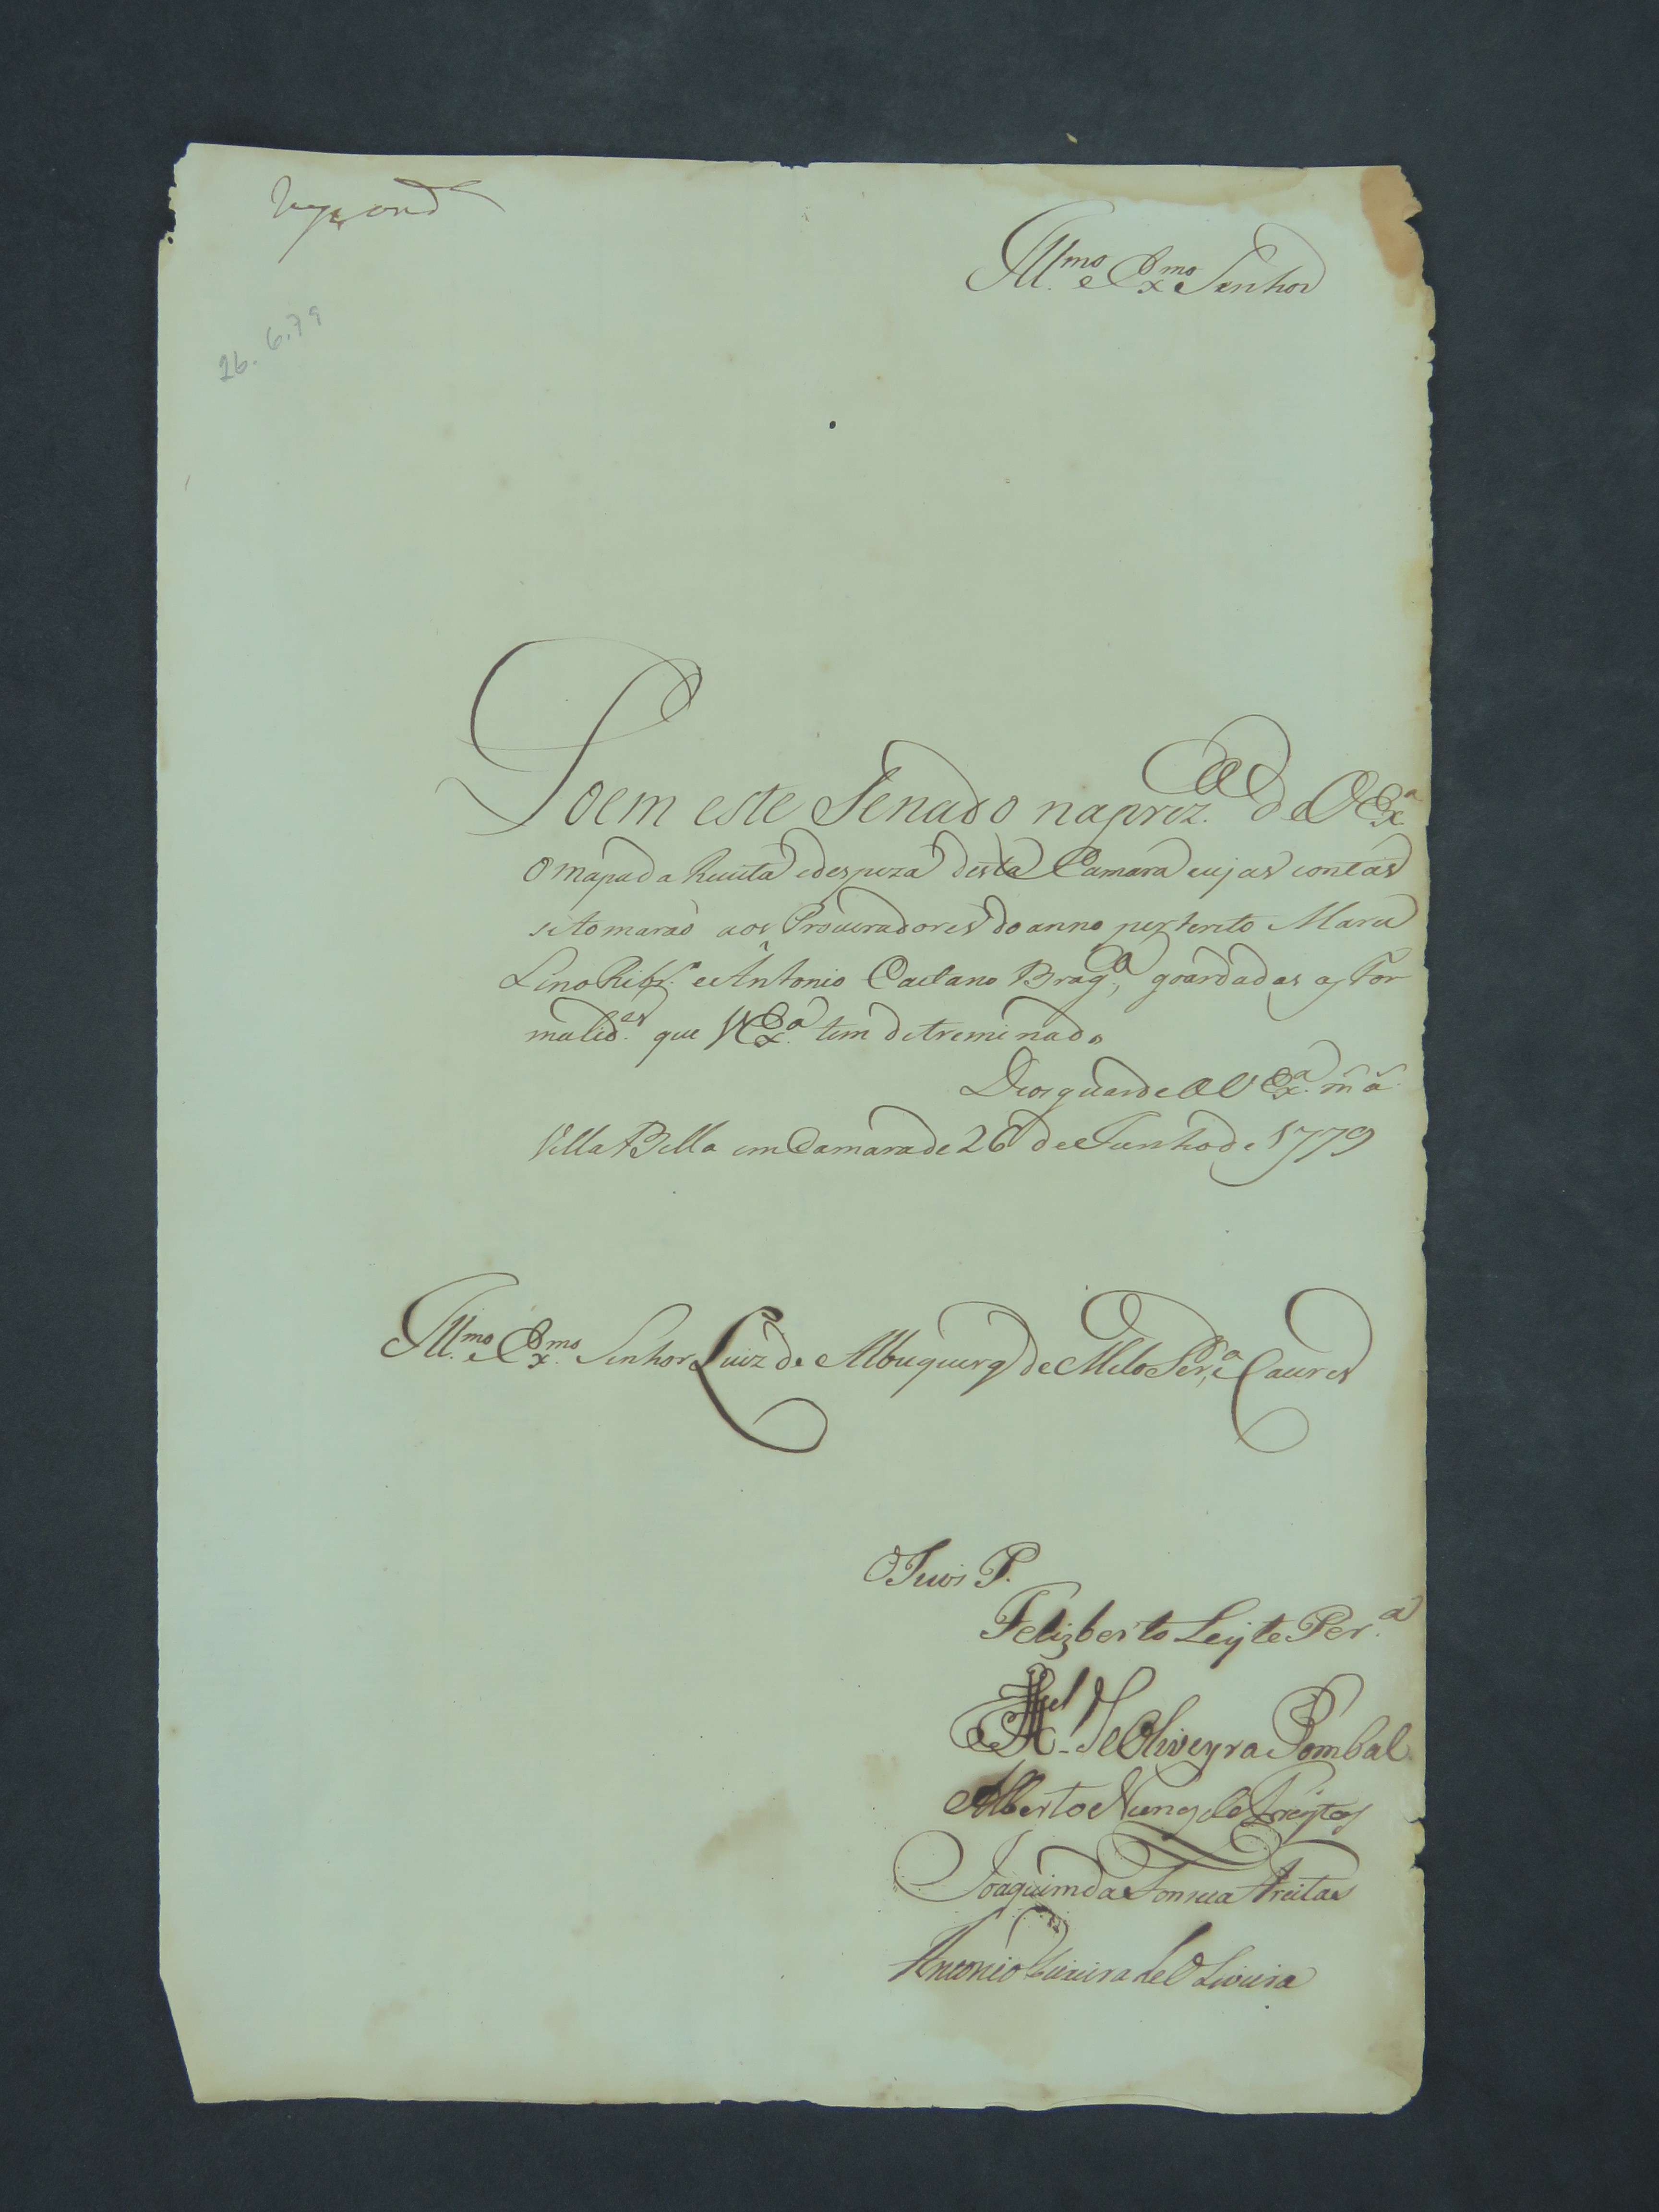 respond.ª
Ill.mo e Ex.mo Senhor
26.6.79
Poem este Senado na prez.ca de V Ex.ª
O mapa da Receita e despeza desta Camara cujas contas
se tomaraõ aos Procuradores do anno preterito Marce
Lino Ribr.º e Antonio Caetano Brag.ª, goardadas as For
malid.es que V Ex.ª tem detreminado
Deos guarde a V Ex.ª m a
Villa Bella em Camara de 26 de Junho de 1779
Ill.mo e Ex.mo Senhor Luiz de Albuquerq de Melo Per.ª e Caceres
O Juis P.
Felizberto Leyte Per.ª
M.el de Oliveyra Pombal
Alberto Nunes de Freytas
Joaquim da Fonseca Freitas
Antonio Teixeira de Oliveira